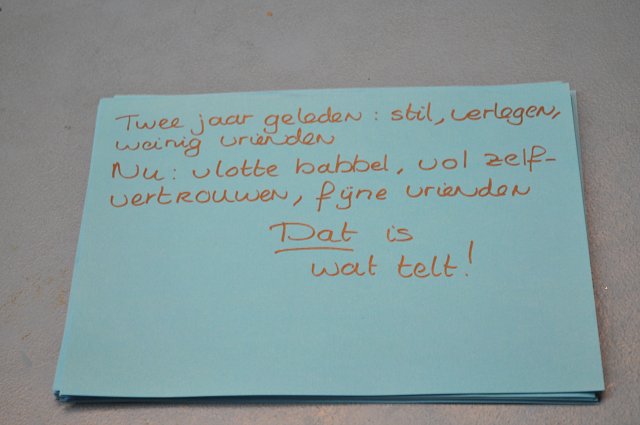 Twee jaar geleden : stil, verlegen,
weinig vrienden
Nu : vlotte babbel, vol zelf-
vertrouwen, fijne vrienden
Dat is
wat telt!